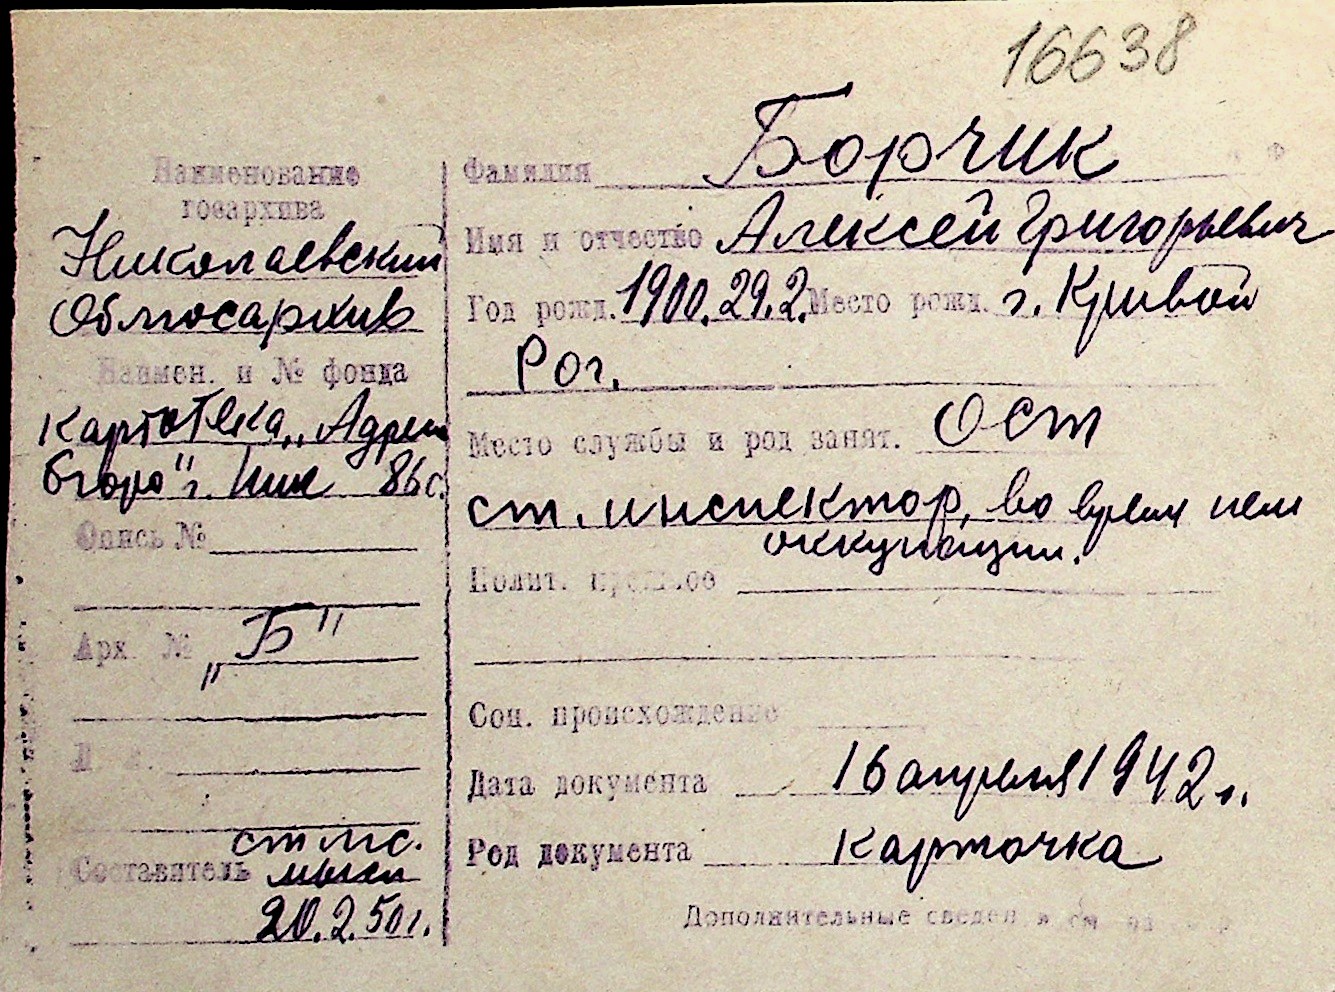 16638
Наименование
госархива
Николаевский
Облгосархив
Наимен. и № фонда
Картотека „Адрес
бюро" г. Ник 86 с.
Опись №
Арх №
„Б"
ст. лс.
Составитель
20.2.50 г.
Фамилия Борчик
Имя и отчество Алексей Григорьевич
Год рожд. 1900.29.2. Место рожд. г. Кривой
Рог.
Место службы и род занят. Ост
ст. инспектор, во время нем
оккупации.
Полит. прошлое
Соц. происхождение
Дата документа 16 апреля 1942 г.
Род документа карточка
Дополнительные сведен. см. на